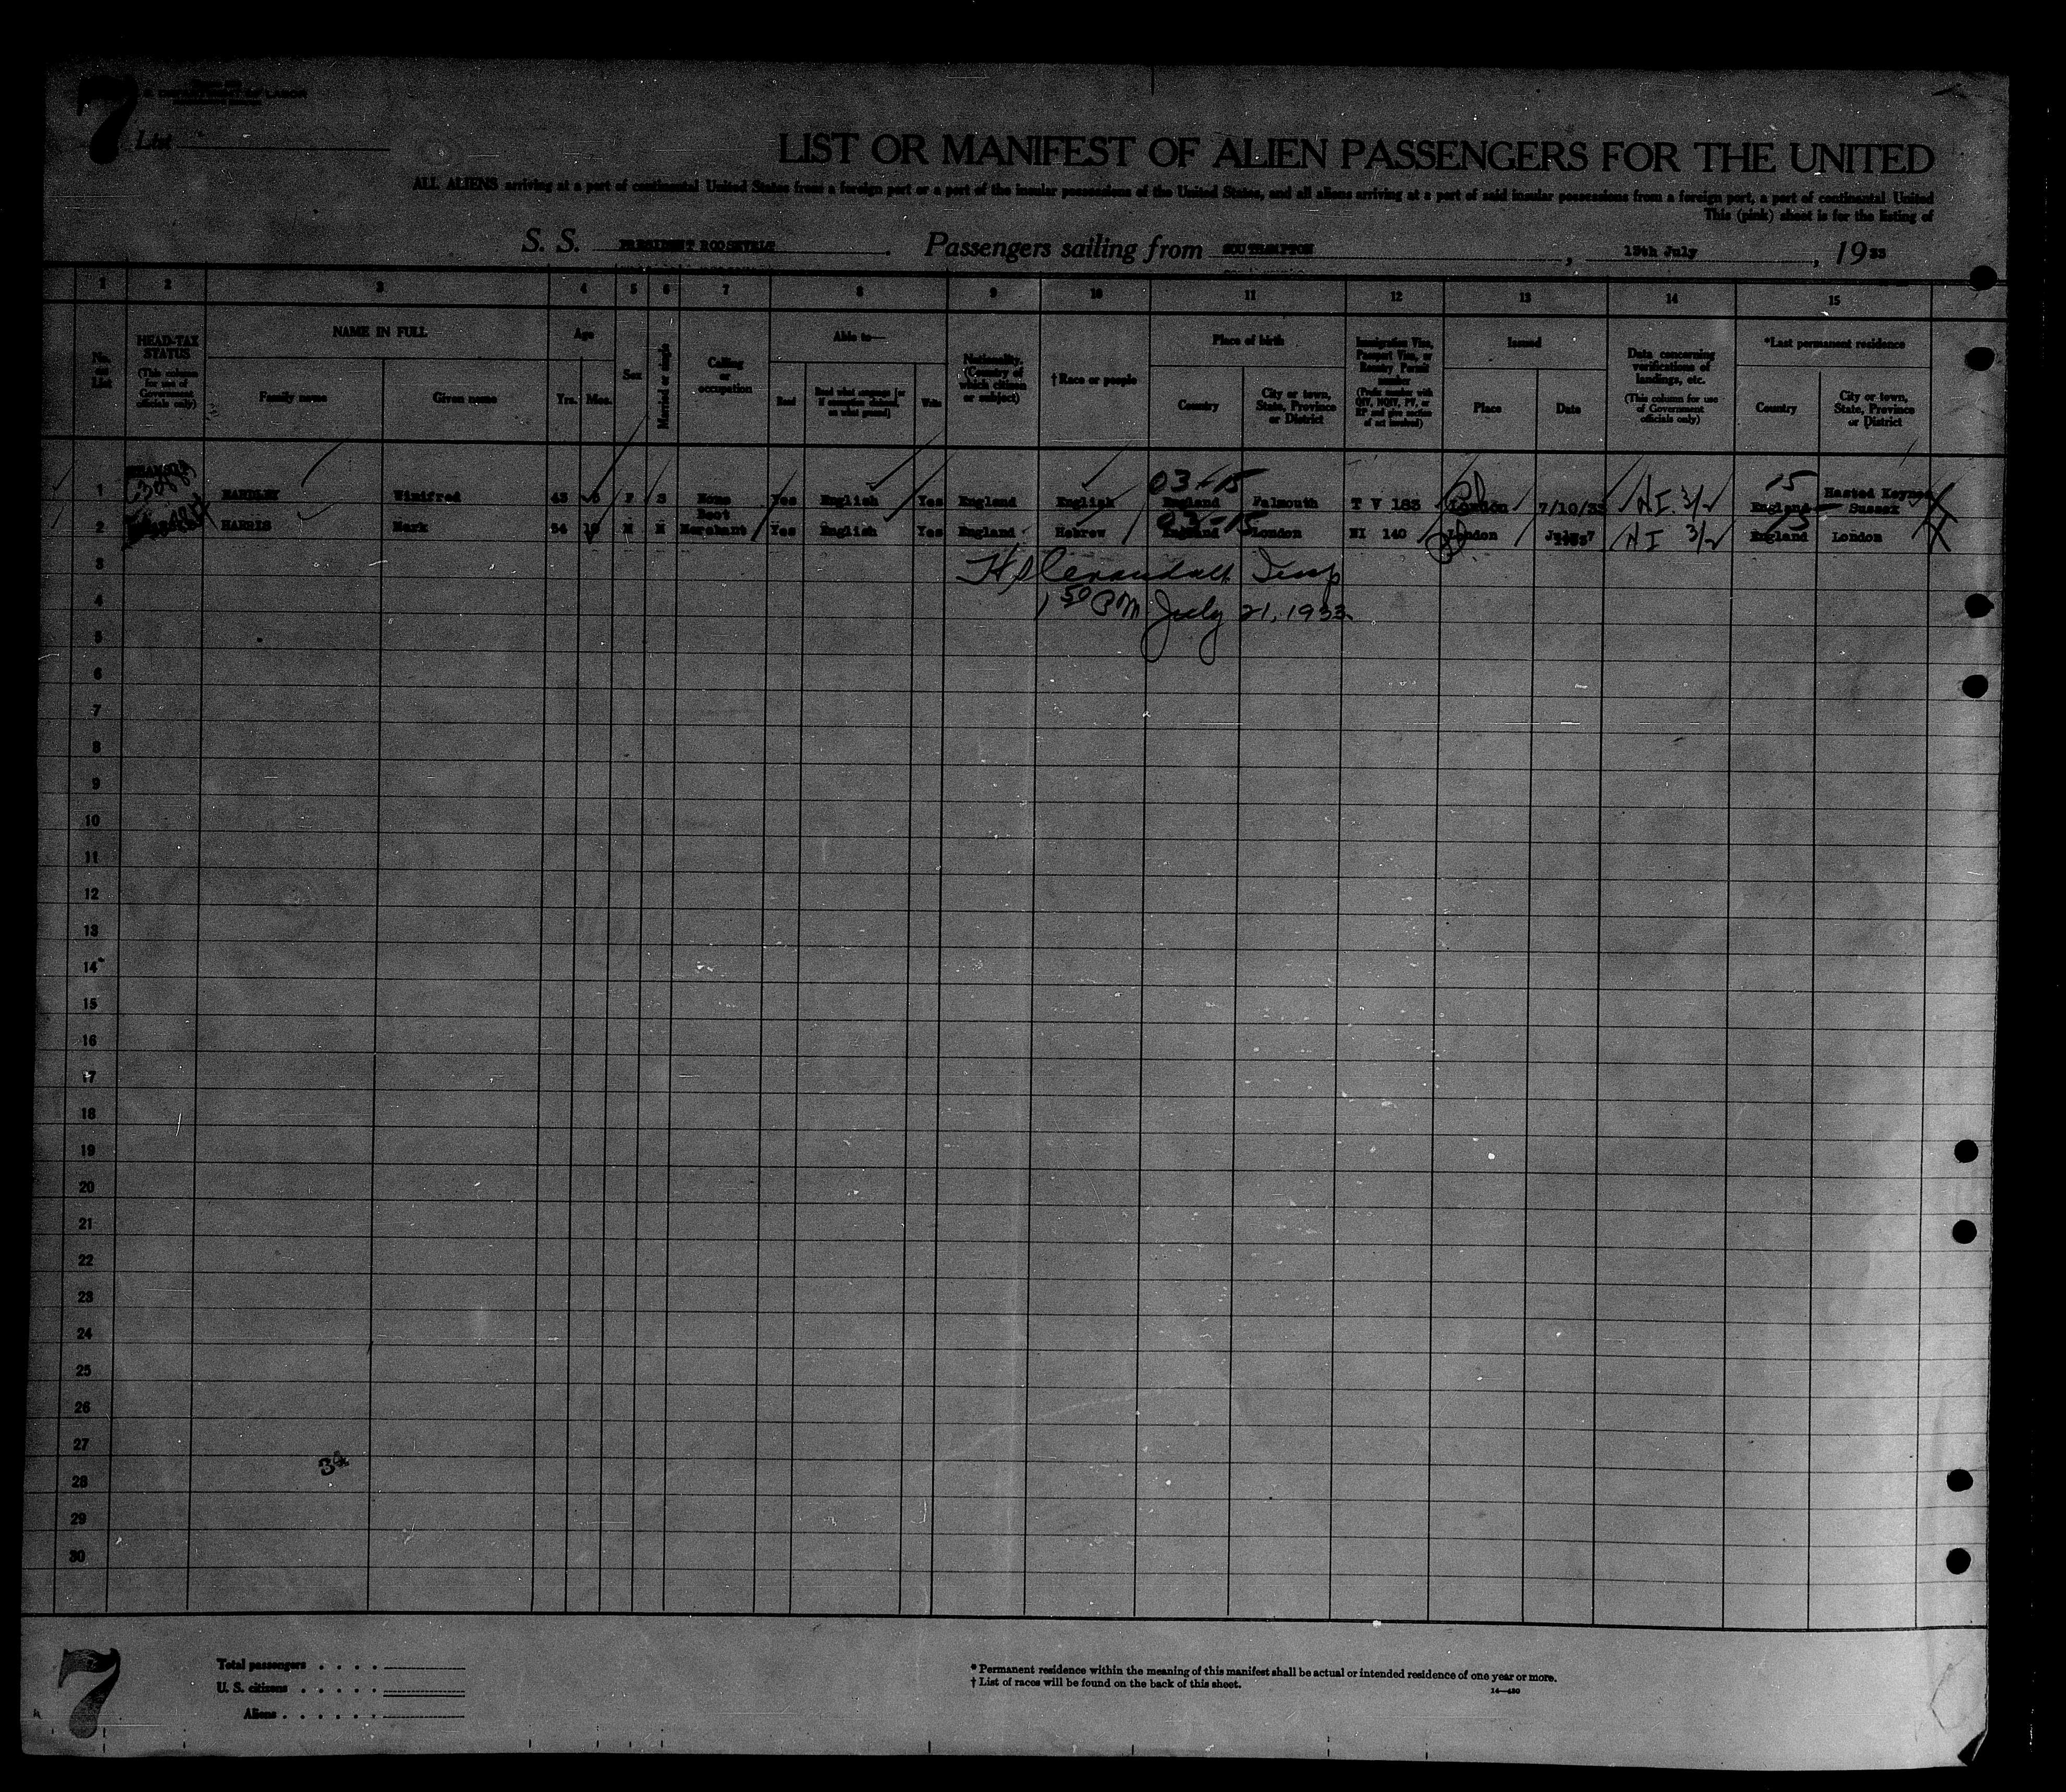 7
U. S. DEPARTMENT OF LABOR
List
LIST OR MANIFEST OF ALIEN PASSENGERS FOR THE UNITED
ALL ALIENS arriving at a port of continental United States from a foreign port or a port of the insular possessions of the United States, and all aliens arriving at a port of said insular possessions from a foreign port, a port of continental United
This (pink) sheet is for the listing of
S. S. PRESIDENT ROOSEVELT. Passengers sailing from SOUTHAMPTON, 13th July, 1933
1 2 3 4 5 6 7 8 9 10 11 12 13 14 15
No. on List
HEAD-TAX STATUS (This column for use of Government officials only)
NAME IN FULL
Family name
Given name
Age
Yrs. Mos.
Sex
Married or single
Calling or occupation
Able to—
Read
Read what language [or if exemption claimed, on what ground]
Write
Nationality. (Country of which citizen or subject)
†Race or people
Place of birth
Country
City or town, State, Province or District
Immigration Visa, Passport Visa, or Reentry Permit number (Prefix number with QIV, NQIV, PV, or RP and give section of act involved)
Issued
Place
Date
Data concerning verifications of landings, etc. (This column for use of Government officials only)
*Last permanent residence
Country
City or town, State, Province or District
03-15
15
1 HANDLEY Winifred 43 F S None Yes English Yes England English England Falmouth T V 183 London 7/10/33 NI 3/2 England Hasted Keynes Sussex
03-15
15
2 HARRIS Mark 54 10 M M Boot Merchant Yes English Yes England Hebrew England London NI 140 London July 7 1933 NI 3/2 England London
3
Insp
4
1 50 PM July 21, 1933
5
6
7
8
9
10
11
12
13
14
15
16
17
18
19
20
21
22
23
24
25
26
27
28
29
30
7
Total passengers
U. S. citizens
Aliens
* Permanent residence within the meaning of this manifest shall be actual or intended residence of one year or more.
† List of races will be found on the back of this sheet.
14—430